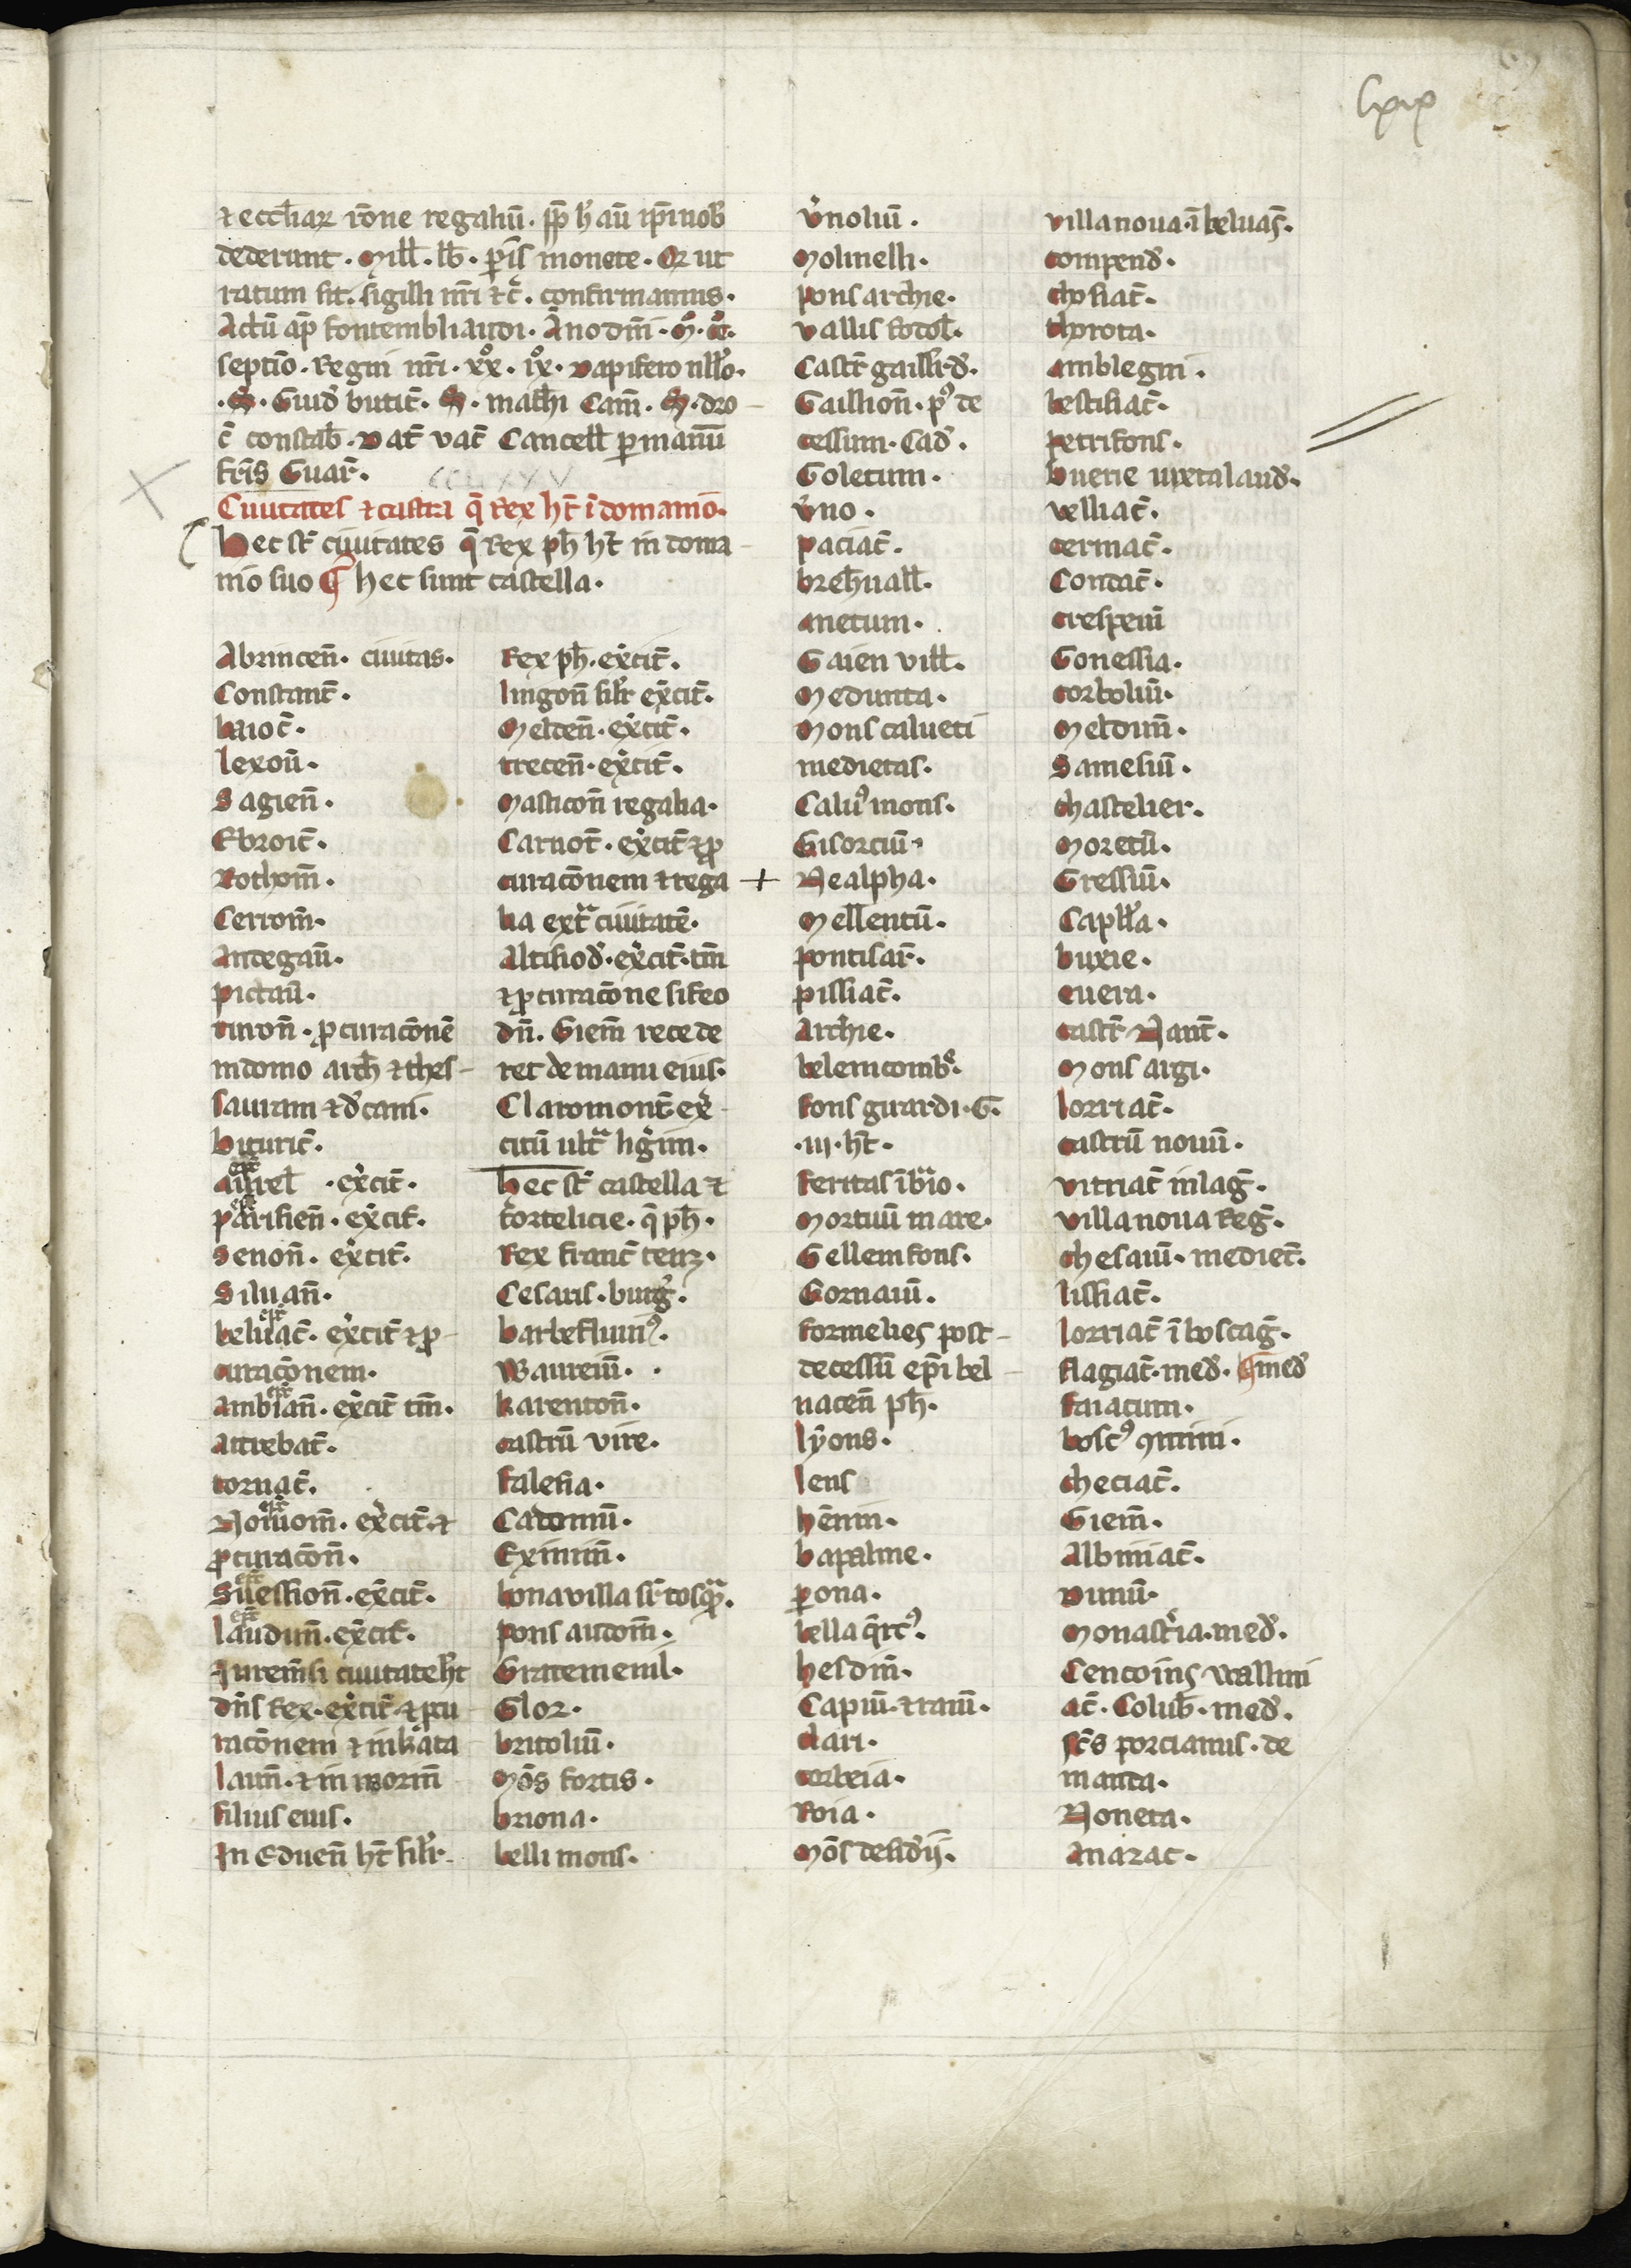 lxix
⁊ eccl̄iaꝝ rōne regaliū. ꝓp̄ h̄ aū ip̄i nob̄
dederunt. Mill̄. lb̄. ꝑis̄ monete. Qꝫ ut
ratum sit. sigilli nr̄i ⁊c̄. confirmamus.
Actū ap̄ fontembliaudi. Āno dn̄i. M̊. cc̊.
septīo. Regni nr̄i. xx̊. ix̊. Dapifero null̄o.
.S. Guid̄ butic̄. S. math̄i Cam̄. S. dro
c̄ constab̄. Dat̄ vac̄ Cancell̄ ꝑ manū
fr̄is Guar̄.
Ciuitates ⁊ castra q̄ Rex ht̄ ī domanio.
Hec st̄ ciuitates q̄ Rex ph̄ ht̄ in doma
nio suo ¶ hec sunt castella.
Abrincen̄. ciuitas.
Constant̄.
baioc̄.
lexou̅.
Sagien̄.
Ebroic̄.
Rothom̄.
Cenom̄.
Andegau̅.
pictau̅.
turon̄. ꝓcuracōnē
in domo arch̄ ⁊ thes
sauram ⁊ d̄cani.
bituric̄.
aurel̄ . ex̄cit̄.
parisien̄. ex̄cit̄.
Senon̄. ex̄cit̄.
Siluan̄.
beluac̄. ex̄cit̄ ⁊ ꝓ
curacōnem.
ambian̄. ex̄cit̄ tm̄.
attrebat̄.
tornac̄.
Nouiom̄. ex̄cit̄ ⁊
ꝓcuracōn̄.
Suession̄. ex̄cit̄.
laudun̄. ex̄cit̄.
dn̄s Rex. ex̄cit̄ ⁊ ꝓcu
racōnem
filius eius.
In Eduen̄ ht̄ silr̄
Rex ph̄. ex̄cit̄.
lingon̄ silr̄ ex̄cit̄.
Melden̄. ex̄cit̄.
trecen̄. ex̄cit̄.
Masticon̄ regalia.
Carnot̄. ex̄cit̄ ⁊ ꝓ
curacōnem ⁊ rega
lia extᵃ ciuitatē.
Altisiod̄. ex̄cit̄. tm̄
⁊ ꝓcuracōne si feo
dū. Giem̄ recede
ret de manu eius.
Claromont̄ ex̄
citū ultᵃ ligīm.
hec st̄ castella ⁊
fortelicie. q̄ ph̄.
Rex franc̄ tenꝫ.
Cesaris. burḡ.
barbefluuiꝰ.
Waureiū.
karenton̄.
castrū vire.
falesia.
Cadomū.
Eximin̄.
bona villa
pons autom̄.
Gratemenil.
Glor.
britoliū.
Mōs fortis.
briona.
belli mons.
v̄noliū.
Molinelli.
pons archie.
vallis rodol̄.
Castr̄ gaill̄rd̄.
Gaillion̄. pꝰ de
cessum. Cad̄.
Goletum.
v̄no.
paciac̄.
breh̄uall̄.
anetum.
Gaien vill̄.
Medunta.
Mons calueti
medietas.
Caluꝰ mons.
Gisorciū.
Nealpha.
Mellentū.
pontisar̄.
pissiac̄.
Archie.
belemcomb̄.
fons girardi. G.
.iij. ht̄.
feritas
Mortuū mare.
Gellemfons.
Gornaiū.
Formelies post
decessū epī bel
nacen̄ ph̄.
lyons.
lens
hēnin.
bapalme.
ꝑona.
bella q̄rcꝰ.
hesdin̄.
Capiū. ⁊ raiū.
clari.
corbeia.
Roia.
Mōs desid̄ij.
villa noua. ī beluas̄.
compend̄.
choisiac̄.
thorota.
amblegni.
bestisiac̄.
petrifons.
buerie iuxta laud̄.
velliac̄.
cermac̄.
Condac̄.
crespeiū
Gonessia.
corboliū.
Meldun̄.
Samesiū.
chastelier.
Moretū.
Gressiū.
Capll̄a.
buxie.
euera.
castr̄ Nant̄.
Mons argi.
lorriac̄.
castrū nouū.
vitriac̄ in lag̅.
villa noua Reg̅.
chesaiū. mediet̄.
lissiac̄.
lorriac̄ ī boscag̅.
flagiac̄. med̄. ¶ med̄
faiacum.
boscꝰ
checiac̄.
Giem̄.
Albiniac̄.
Dunū.
Monastīa. med̄.
ac̄. Colub̄. med̄.
sc̄s porcianus. de
manca.
Noneta.
Anazac.